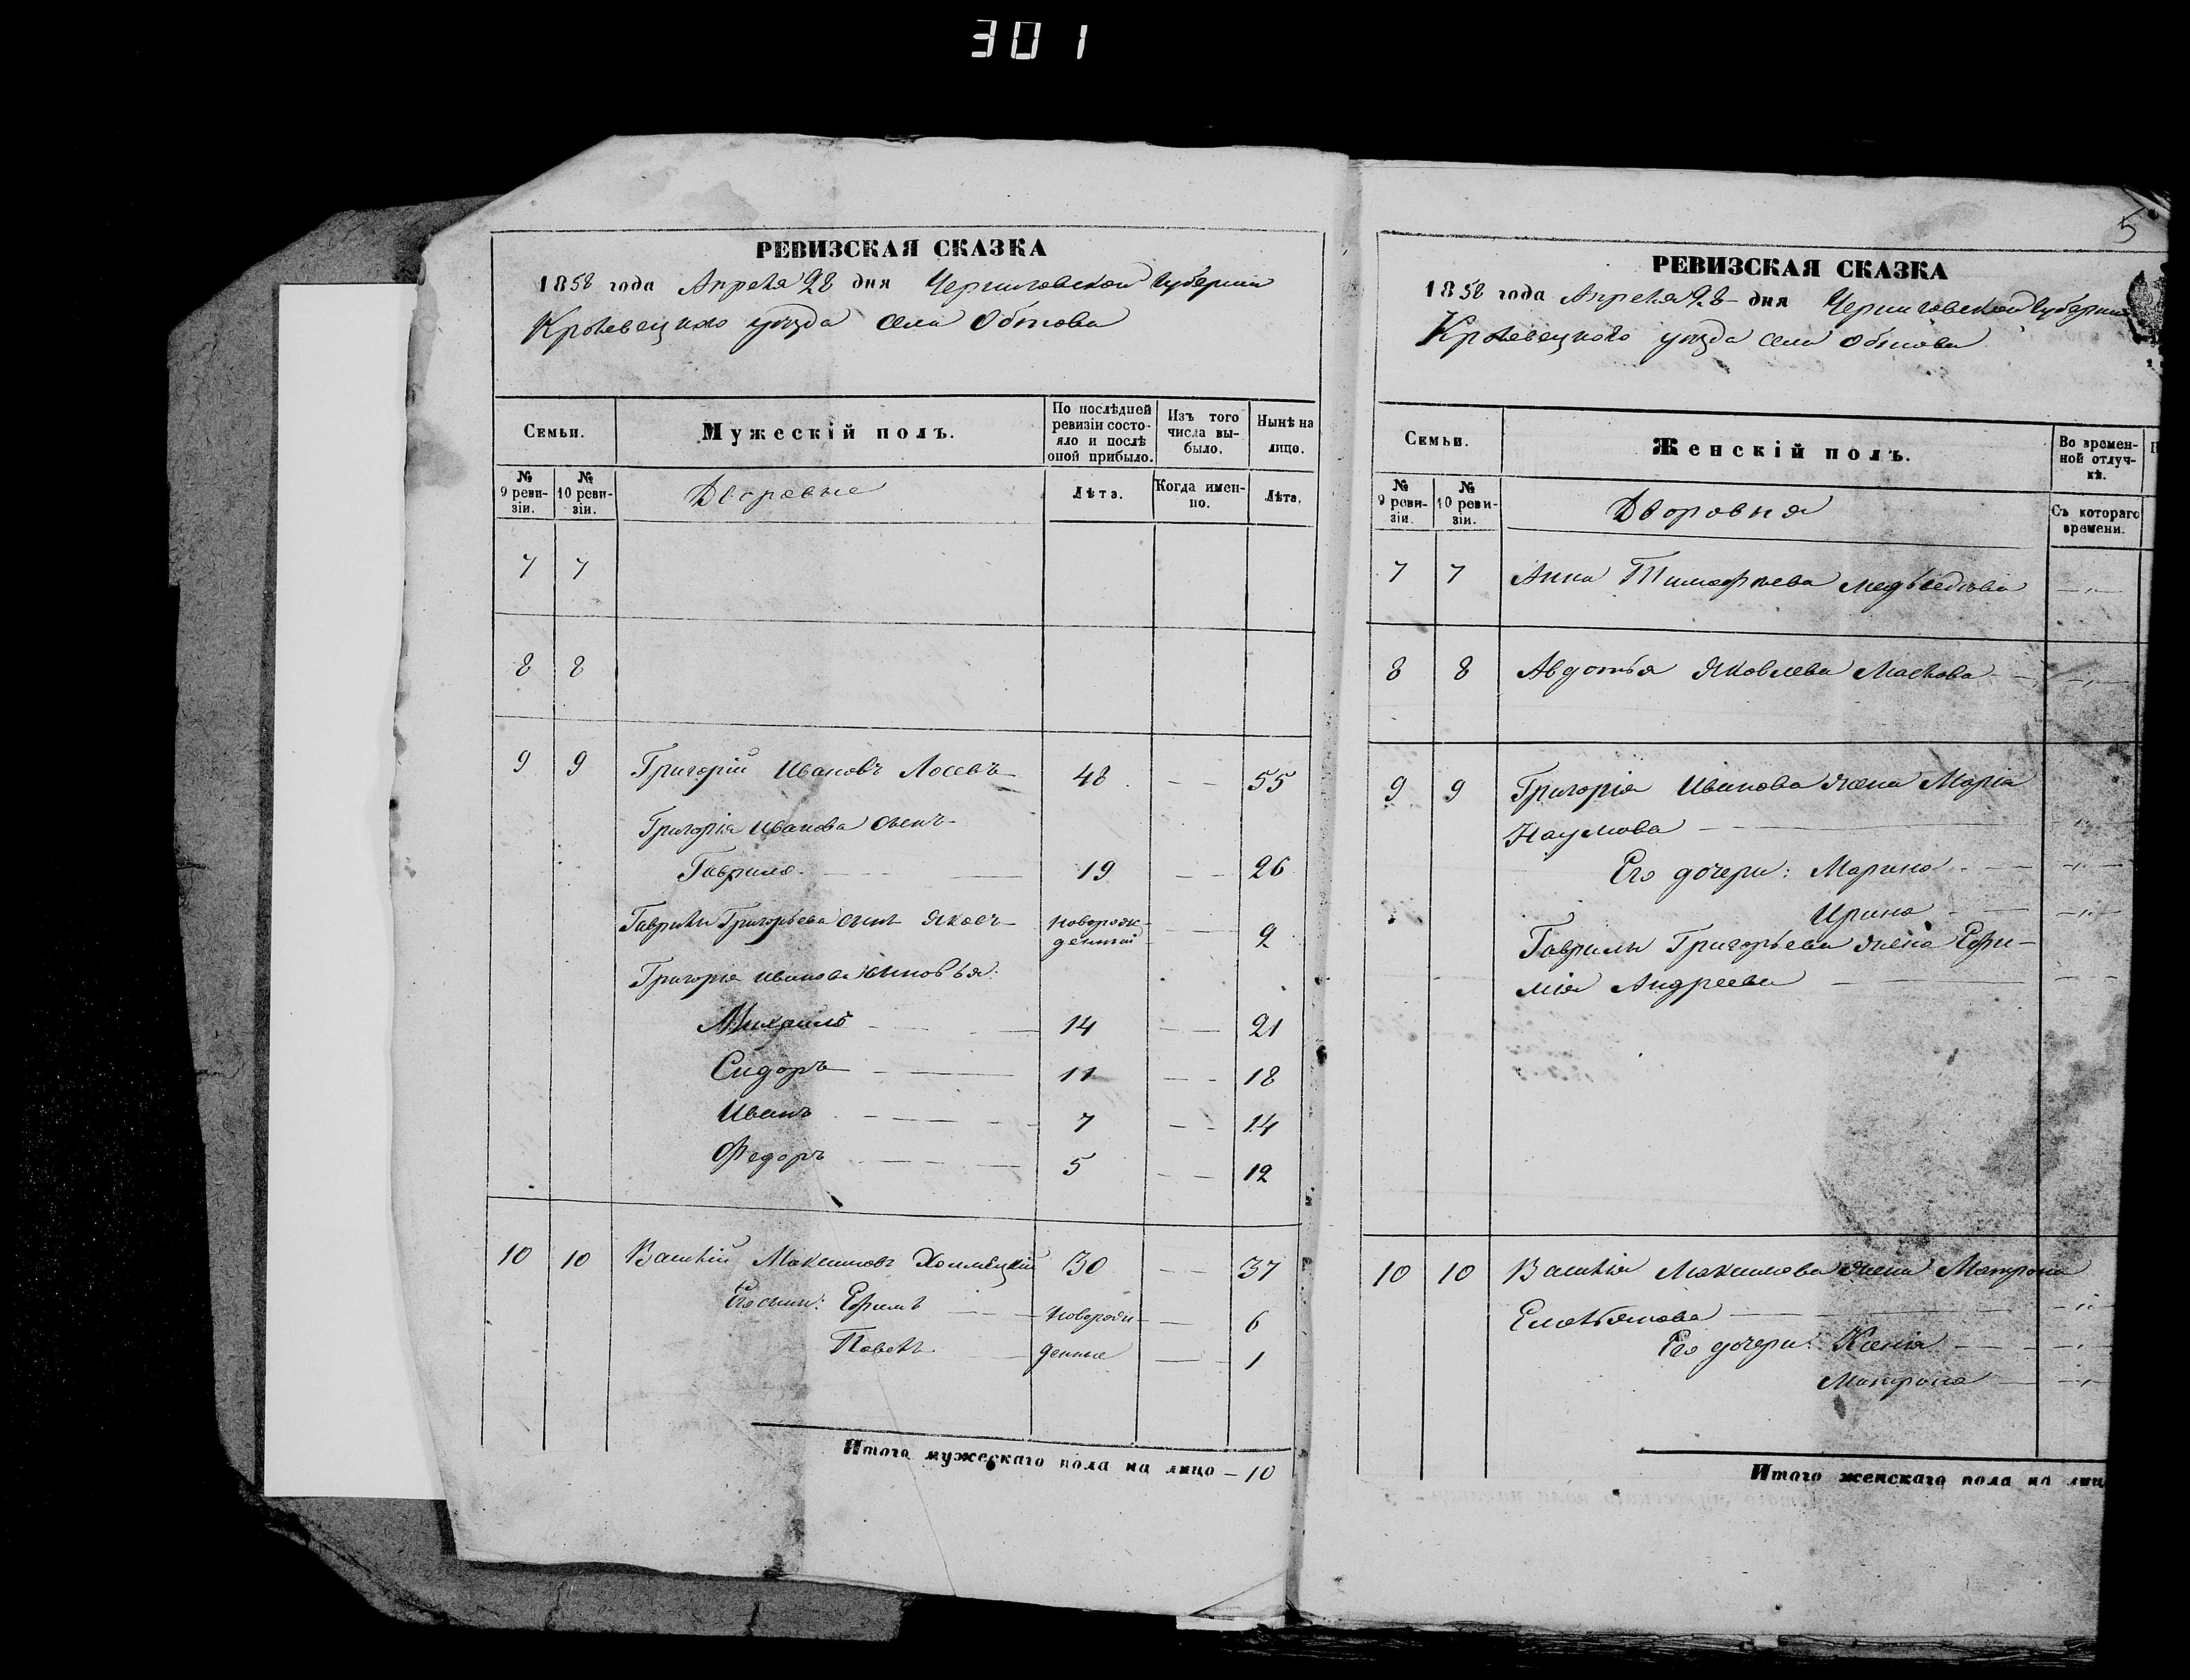 301
РЕВИЗСКАЯ СКАЗКА
1858 года Апреля 28 дня Черниговской Губернии
Кролевецкаго уезда села Обтова
Семьи.
Мужескій полъ.
По послѣдней ревизіи состояло и послѣ оной прибыло.
Изъ того числа выбыло.
Нынѣ на лицо.
№ 9 ревизіи.
№ 10 ревизіи.
Дворовые
Лѣта.
Когда именно.
Лѣта.
7 7
8 8
9 9 Григорій Ивановъ Лосевъ 48 — — 55
Григорія Иванова сынъ
Гаврило 19 — — 26
Гаврилы Григорьева сынъ Яковъ новорожденный — 2
Григорія Иванова сыновья:
Михаилъ 14 — — 21
Сидоръ 11 — — 18
Иванъ 7 — — 14
Федоръ 5 — — 12
10 10 Василій Максимовъ 30 — — 37
Его сыны: Ефимъ новорож- — 6
Павелъ денные — 1
Итого мужескаго пола на лицо — 10
5
РЕВИЗСКАЯ СКАЗКА
1858 года Апреля 28 дня Черниговской Губернии
Кролевецкого уезда села Обтова
Семьи.
Женскій полъ.
Во временной отлучкѣ.
№ 9 ревизіи.
№ 10 ревизіи.
Дворовыя
Съ котораго времени.
7 7 Анна Тимофѣева Медвѣдева — „ —
8 8 Авдотья Яковлева — „ —
9 9 Григорія Иванова жена Марія
Наумова — „ —
Его дочери: Марина — „ —
Ирина — „ —
Гаврилы Григорьева жена Ефи-
мія Андреева — —
10 10 Василія Максимова жена Матрона
Емельянова — „ —
Его дочери: Ксенія — „ —
Матрона — „ —
Итого женскаго пола на лиц